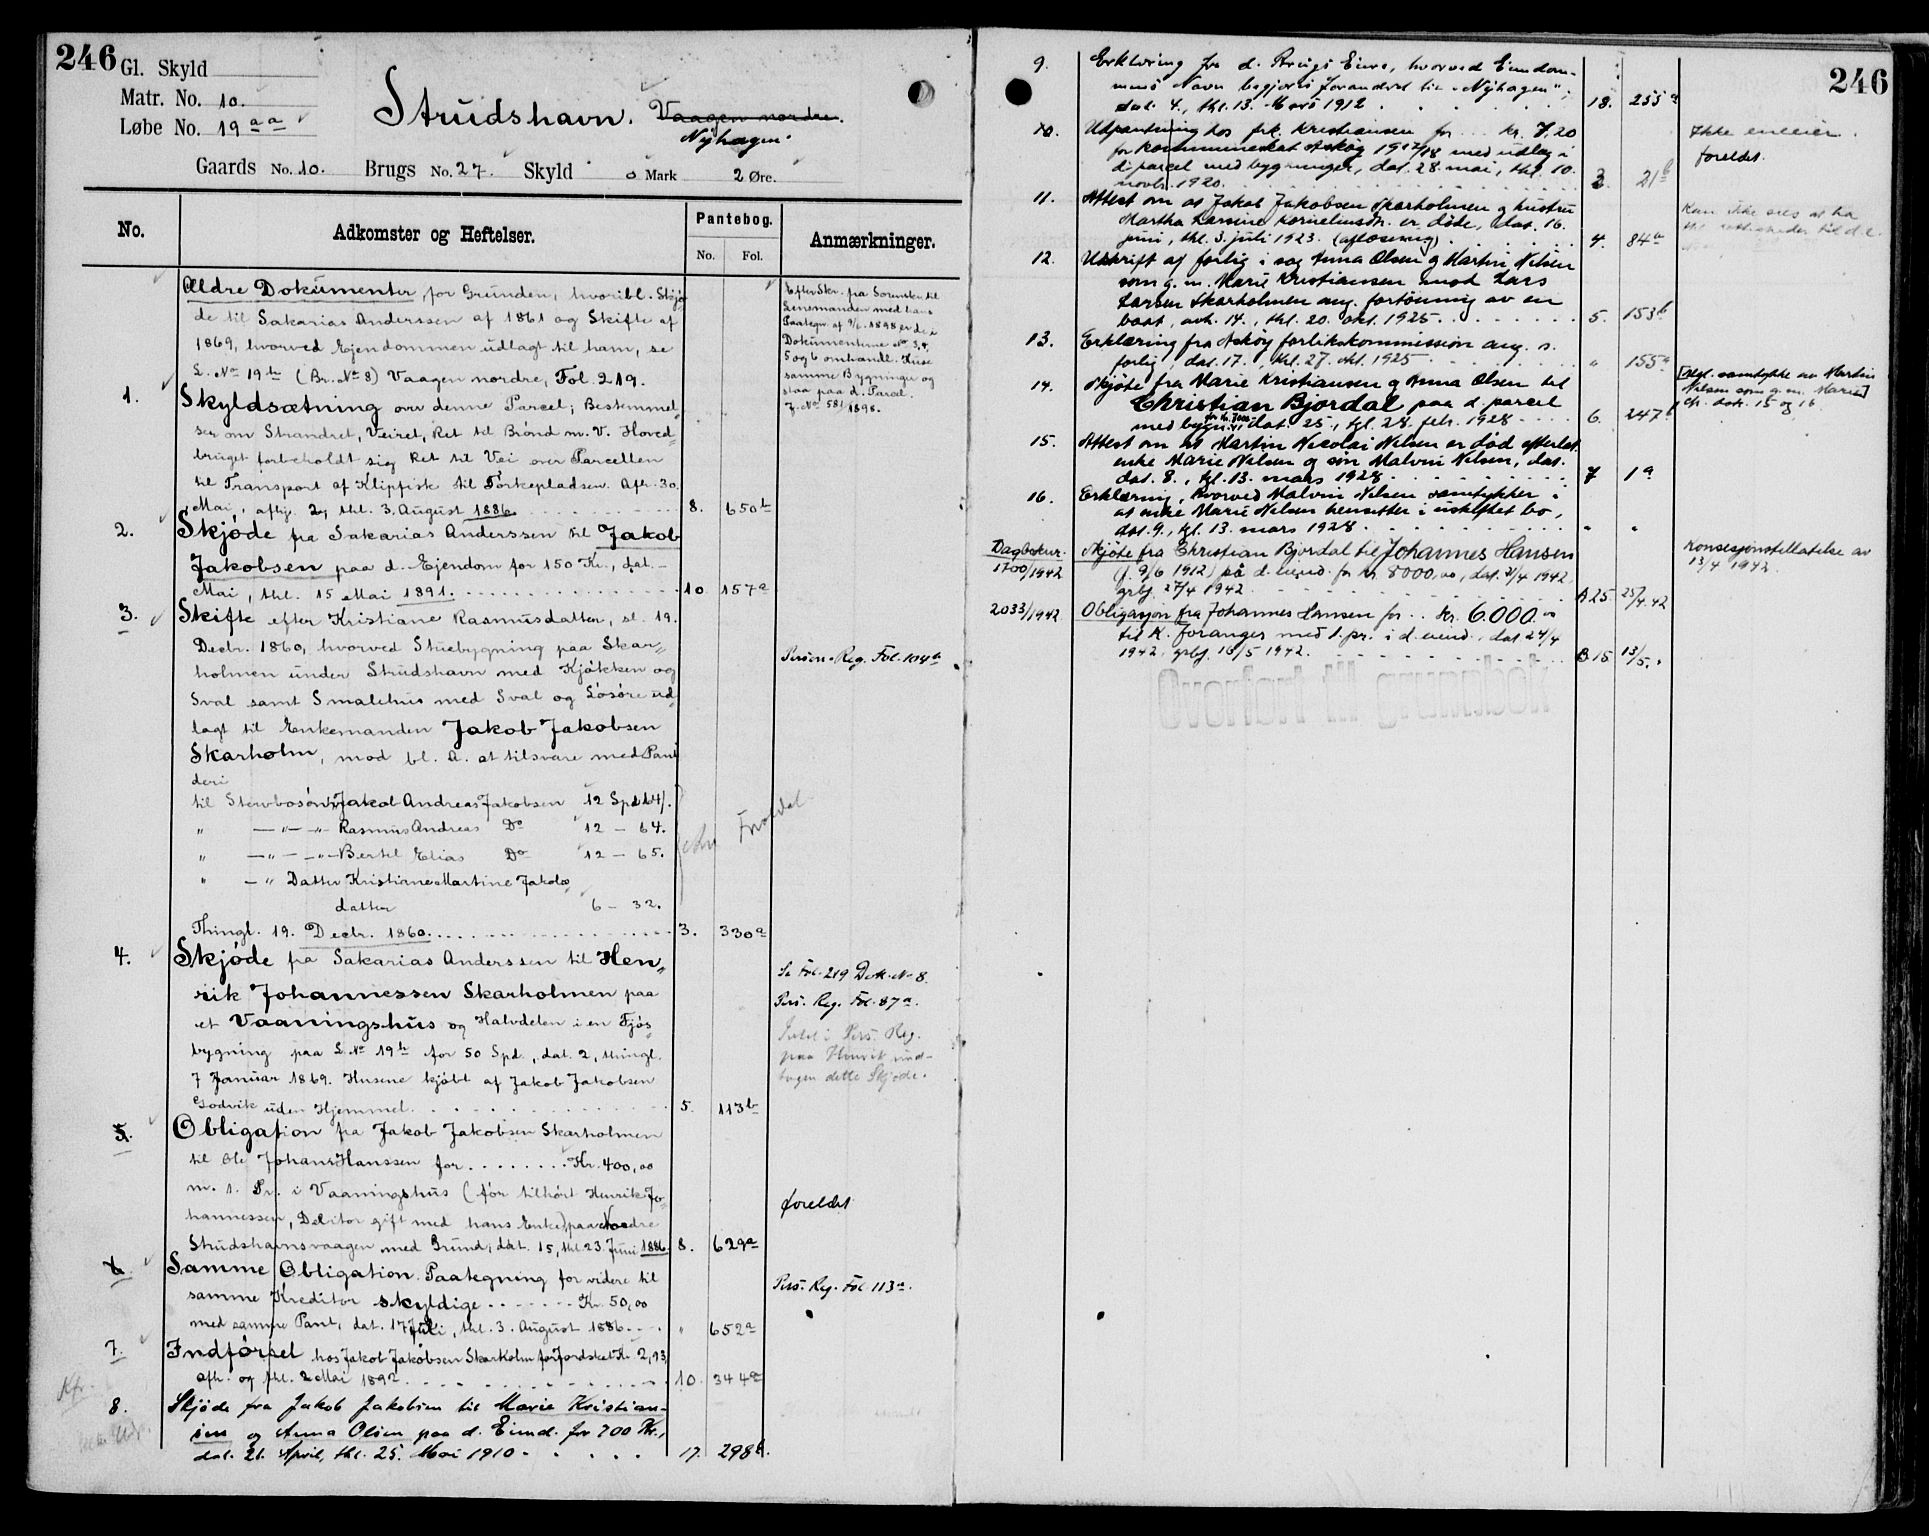 246
Gl. Skyld
Matr. No. 10.
Løbe No. 19 aa
Strudshavn. Vaagen nordre.
Nyhagen
Gaards No. 10. Brugs No. 27. Skyld 0 Mark 2 Øre.
No. Adkomster og Heftelser. Pantebog. No. Fol. Anmærkninger.
Ældre Dokumenter for Grunden, hvoribl. Skjø-
de til Sakarias Anderssen af 1861 og Skifte af
1869, hvorved Ejendommen udlagt til ham, se
L. No 19 b (Br. No 8) Vaagen nordre, Fol. 219.
Efter Skr. fra Sorensk. til
Lensmanden med hans
Paategn. af 9/6. 1898 er de i
Dokumenterne No 3, 4,
5 og 6 omhandl. Huse
samme Bygninger og
staa paa d. Parcel.
J. No 581/1898.
1. Skyldsætning over denne Parcel; Bestemmel-
ser om Strandret, Veiret, Ret til Brønd m. V. Hoved-
bruget forbeholdt sig Ret til Vei over Parcellen
til Transport af Klipfisk til Tørkepladsen. Afh. 30.
Mai, afhj. 2, thl. 3. August 1886. 8. 650 b
2. Skjøde fra Sakarias Anderssen til Jakob
Jakobsen paa d. Ejendom for 150 Kr., dat. -
Mai, thl. 15 Mai 1891. 10 157 a
3. Skifte efter Kristiane Rasmusdatter, sl. 19.
Decbr. 1860, hvorved Stuebygning paa Skar-
holmen under Strudshavn med Kjøkken og
Sval samt Smalehus med Sval og Løsøre ud-
lagt til Enkemanden Jakob Jakobsen
Skarholm, mod bl. A. at tilsvare med Pant
deri
Person-Reg. Fol. 104 a
til Stervbosønnen Jakob Andreas Jakobsen 12 Spd 64/.
" —"—"— Rasmus Andreas Do 12 — 64.
" —"—"— Bertel Elias Do 12 — 65.
" —" Datter Kristiane Martine Jakobs-
datter 6 — 32.
Thingl. 19. Decbr. 1860. 3. 330 a
4. Skjøde fra Sakarias Anderssen til Hen-
rik Johannessen Skarholmen paa
et Vaaningshus og Halvdelen i en Fjøs-
bygning paa L. No 19 b for 50 Spd., dat. 2, thingl.
7 Januar 1869. Husene kjøbt af Jakob Jakobsen
Godvik uden Hjemmel. 5. 113 b
Se Fol. 219 Dok. No 8.
Pers. Reg. Fol. 87 a.
Intet i Pers. Reg.
paa Henrik und-
tagen dette Skjøde.
5. Obligation fra Jakob Jakobsen Skarholmen
til Ole Johan Hanssen for Kr. 400,00
m. 1. Pr. i Vaaningshus (før tilhørt Henrik Jo-
hannessen, Debitor gift med hans Enke), paa Nordre
Strudshavnsvaagen med Grund, dat. 15, thl. 23. Juni 1886. 8. 629 a
foreldet
6. Samme Obligation. Paategning for videre til
samme Kreditor skyldige Kr. 50,00
med samme Pant, dat. 17 Juli, thl. 3. August 1886. " 652 a
Pers. Reg. Fol. 113 a.
7. Indførsel hos Jakob Jakobsen Skarholm for Jordskat Kr. 2,93,
afh. og thl. 2 Mai 1892. 10. 344 a
8. Skjøde fra Jakob Jakobsen til Marie Kristian-
sen og Anna Olsen paa d. Eiend. for 700 Kr.,
dat. 21. April, thl. 25. Mai 1910 17. 298 b.
246
9. Erklæring fra d. Brugs Eiere, hvorved Eiendom-
mens Navn begjæres forandret til "Nyhagen",
dat. 4., thl. 13. Mars 1912 18. 255 a
10. Udpantning hos frk. Kristiansen for kr. 7.20
for kommuneskat Askøy 1917/18 med utlæg i
d. parcel med bygninger, dat. 28. mai, thl. 10.
novbr. 1920. 3. 21 b
Ikke eneeier.
foreldet.
11. Attest om at Jakob Jakobsen Skarholmen og hustru
Martha Larsine Kornelinsdtr. er døde, dat. 16.
juni, thl. 3. juli 1923. (avløsning) 4. 84 a
Kan ikke sees at ha
12. Utskrift af forlig i sag Anna Olsen og Martin Nilsen
som g. m. Marie Kristiansen mod Lars
Larsen Skarholmen ang. fortøining av en
baat, avh. 14., thl. 20. okt. 1925. 5. 153 b
13. Erklæring fra Askøy forlikskommission ang. s.
forlig, dat. 17., thl. 27. okt. 1925 " 155 a
14. Skjøte fra Marie Kristiansen og Anna Olsen til
Christian Bjordal paa d. parcel
med bygn. dat. 25., tgl. 28. febr. 1928 6. 247 b
[Mgl. samtykke av Martin
Nilsen som g. m. Marie]
cfr. dok. 15 og 16
15. Attest om at Martin Nicolai Nilsen er død efterlat
enke Marie Nilsen og søn Malvin Nilsen, dat.
dat. 8., tgl. 13. mars 1928 7 1 a
16. Erklæring, hvorved Malvin Nilsen samtykker i
at enke Marie Nilsen hensitter i uskiftet bo,
dat. 9., tgl. 13. mars 1928 " "
Dagboknr.
1700/1942 Skjøte fra Christian Bjordal til Johannes Hansen
(f. 9/6 1912) på d. eiend. for kr. 8000,00, dat. 21/4 1942,
grbf. 27/4 1942. A 25 25/4.42
Konsesjonstillatelse av
13/4 1942.
2033/1942 Obligasjon fra Johannes Hansen for kr. 6.000.00
til K. Foranger med 1. pr. i d. eiend., dat. 24/4
1942, grbf. 16/5 1942. B 15 13/5.